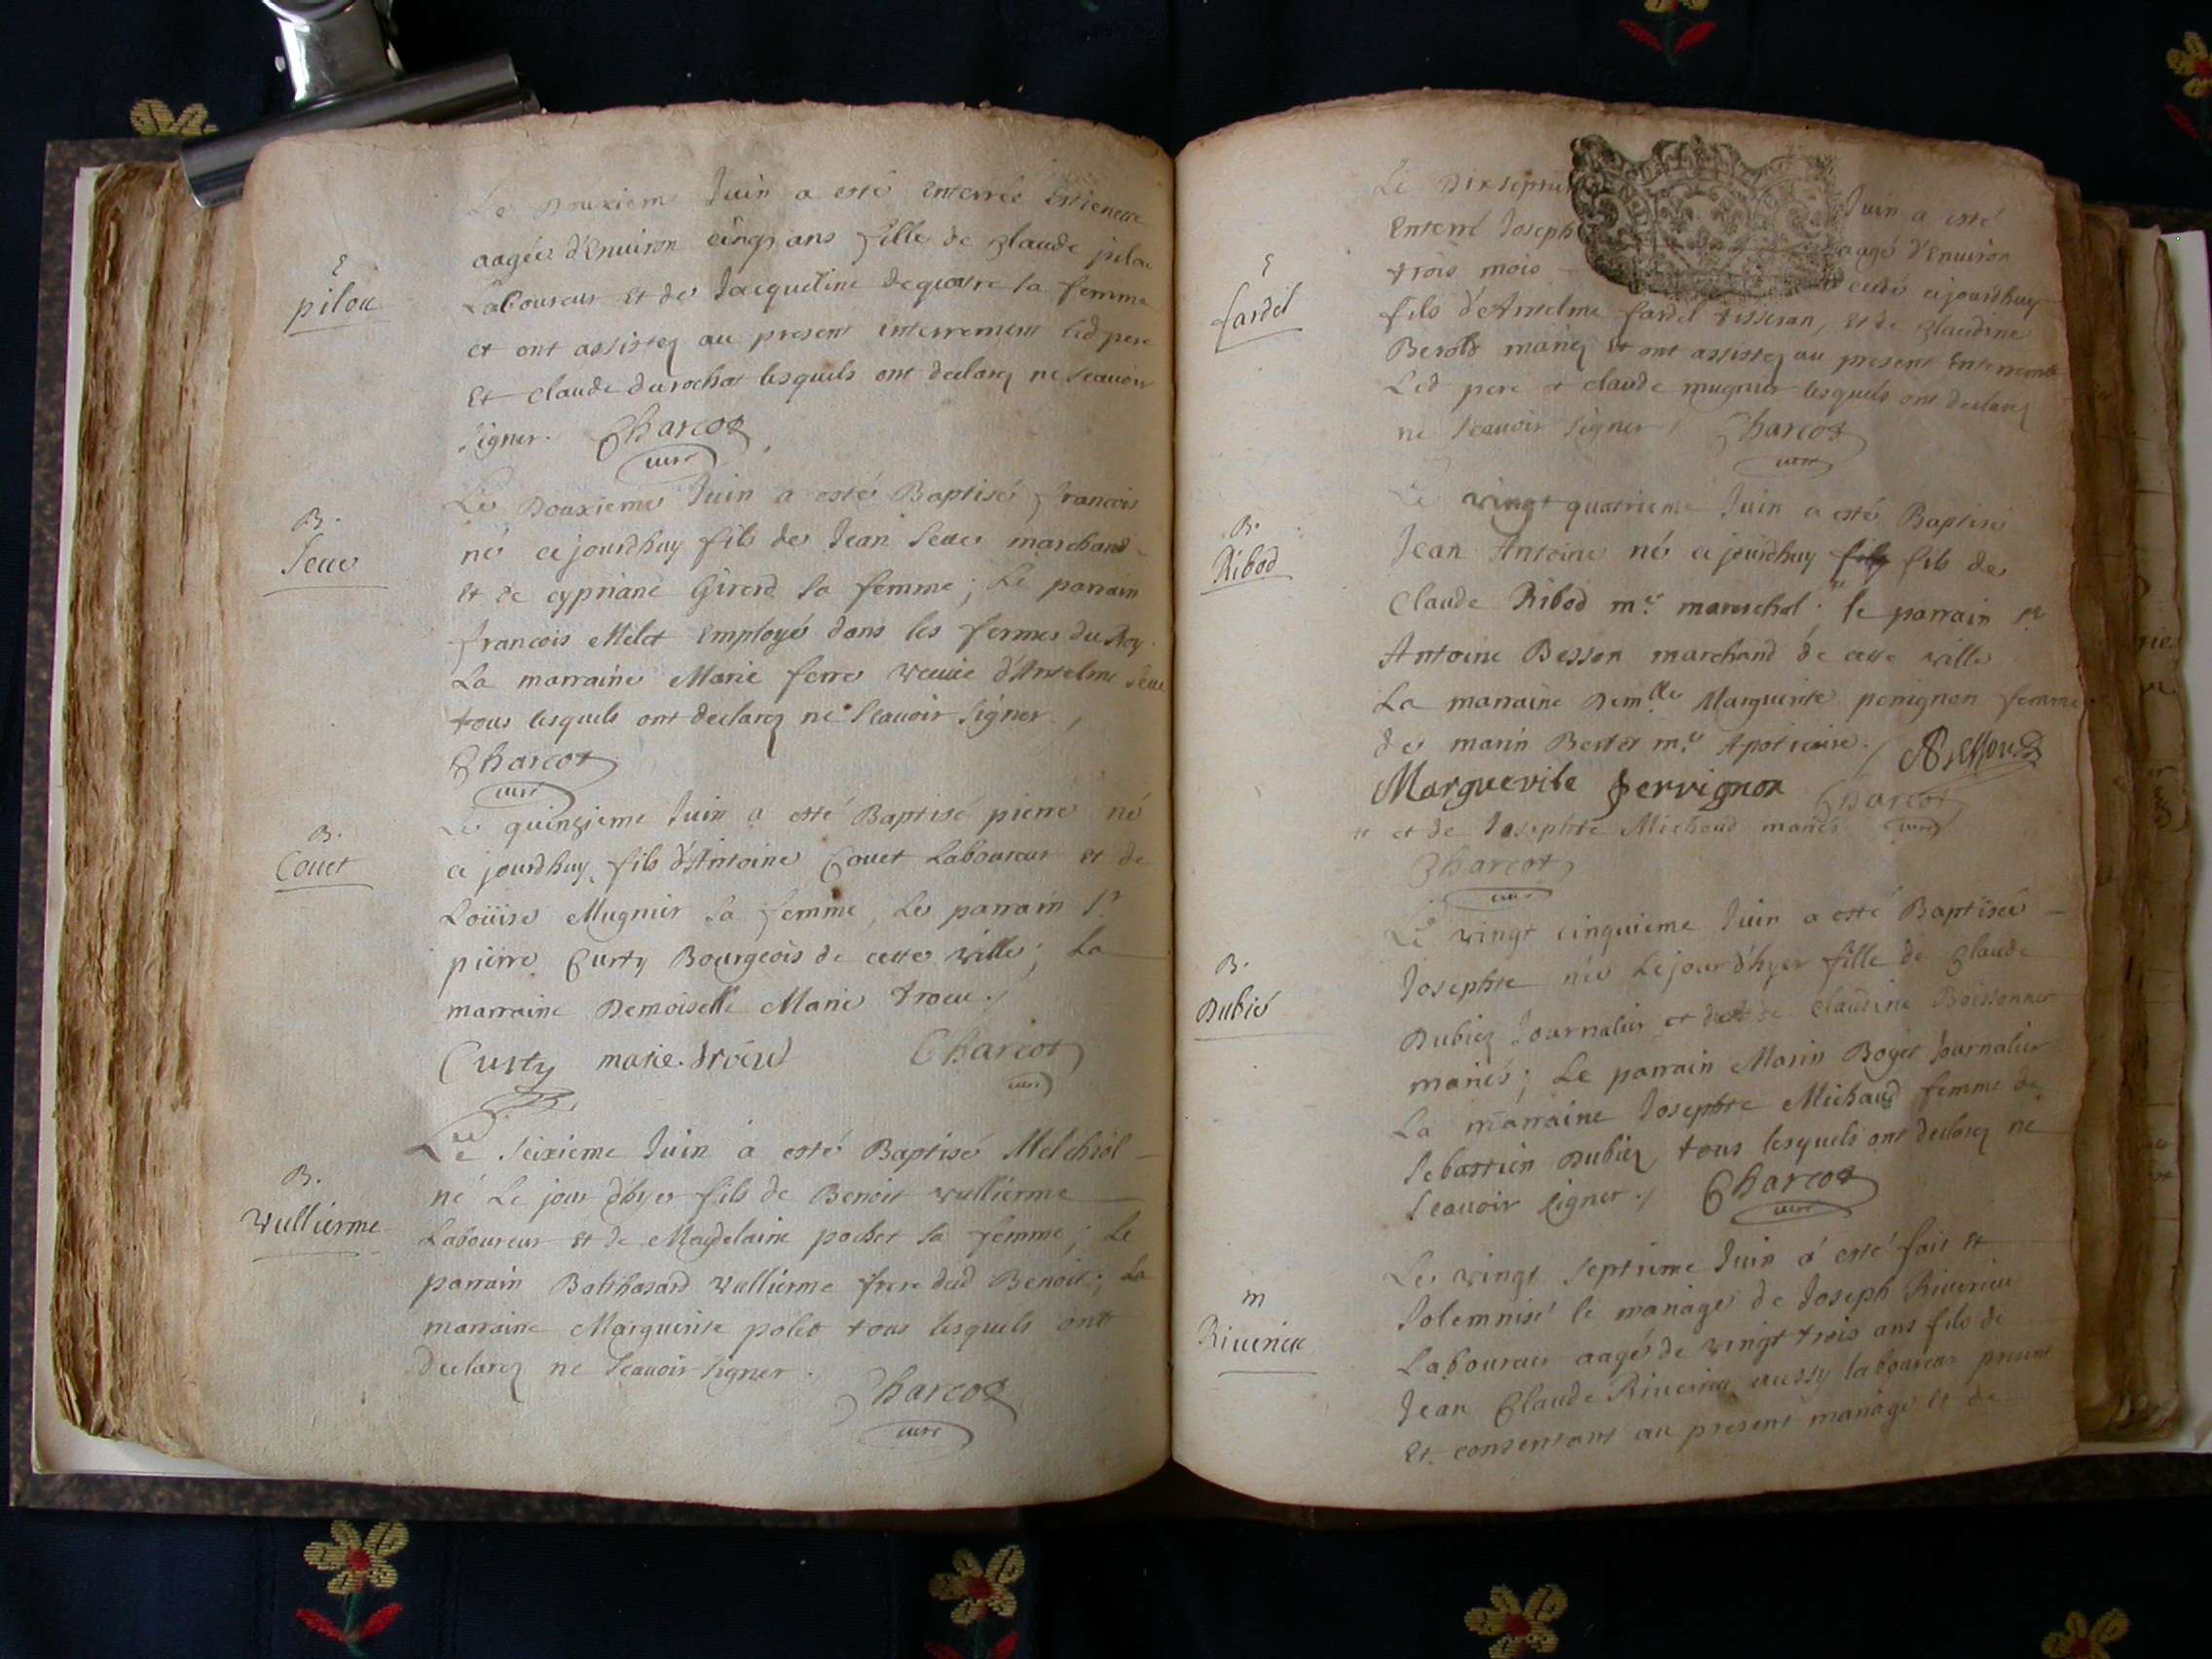 Le Douxieme Juin a esté Enterrée Estienette
aagée d'Enuiron cinq ans fille de Claude pilou
Laboureur Et de Jacqueline dequatre sa femme
et ont assistez au present interrement led pere
Et Claude durochat lesquels ont declarez ne scauoir
signer. Charcot
curé
E
pilou
Le Douxieme Juin a esté Baptisé francois
né cejourdhuy fils de Jean Seue marchand
Et de cypriane Girerd sa femme ; Le parrain
francois Melet Employé dans les fermes du Roy.
La marraine Marie ferre veuue d'Antelme Seue
tous lesquels ont declarez ne scauoir signer./
Charcot
curé
B.
Seue
Le quinzieme Juin a esté Baptisé pierre né
ce jourdhuy fils d'Antoine Couet Laboureur Et de
Loüise Mugnier sa femme, Le parrain Sr
pierre Curty Bourgeois de cette ville ; La
marraine Demoiselle Marie troeu./
Curty marie. troeu Charcot
curé
B.
Couet
Le seixieme Juin a esté Baptisé Melchiol
né Le jour d'hyer fils de Benoit vullierme
Laboureur Et de Magdelaine pochet sa femme ; Le
parrain Balthasard vullierme frere dud Benoit ; La
marraine Marguerite polet tous lesquels ont
declarez ne scauoir signer.
Charcot
curé
B.
vullierme
Le Dixseptie Juin a esté
Enterré Joseph aagé d'Enuiron
trois mois cedé cejourdhuy
fils d'Antelme fardel tisseran, Et de Claudine
Berold mariez Et ont assistez au present Enterremt
Led pere et claude mugnier lesquels ont declarez
ne scauoir signer / Charcot
curé
E
fardel
Le vingt quatrieme Juin a esté Baptisé
Jean Antoine né cejourdhuy fils de
Claude Ribod me mareschal ; " le parrain Sr
Antoine Besson marchand de cette ville
La marraine Demlle Marguerite perrignon femme
de marin Bertet me Apoticaire./
Marguerite perrignon Charcot
" et de Josephte Michaud mariés curé
Charcot
curé
B.
Ribod
Le vingt cinquieme Juin a esté Baptisée
Josephte née Lejour d'hyer fille de Claude
Dubiez Journalier et de Claudine Boissonnet
mariés ; Le parrain Marin Boget Journalier
La marraine Josephte Michaud femme de
Sebastien Dubiez tous lesquels ont declarez ne
scauoir signer./ Charcot
curé
B.
Dubié
Le vingt septieme Juin a esté fait Et
solemnisé le mariage de Joseph Riuerieu
Laboureur aagé de vingt trois ans fils de
Jean Claude Riuerieu aussy laboureur present
Et consentant au present mariage Et de
m
Riuerieu